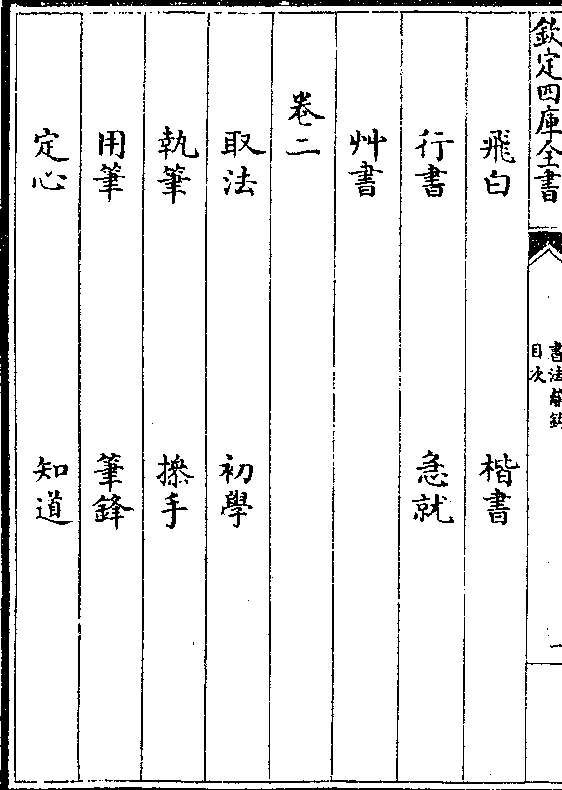 欽定四庫全書
書法離鉤
目次
一
飛白 楷書
行書 急就
艸書
卷二
取法 初學
執筆 撡手
用筆 筆鋒
定心 知道